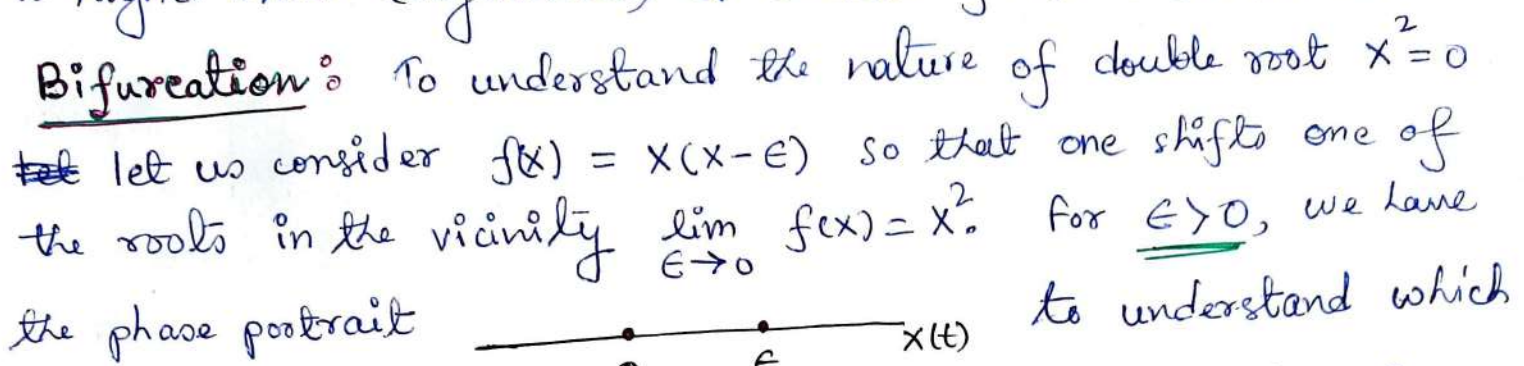 Bifurcation: To understand the nature of double root x²=0
let us consider f(x) = x(x-ϵ) so that one shifts one of
the roots in the vicinity lim ϵ→0 f(x) = x². For ϵ>0, we have
the phase portrait x(t) to understand which